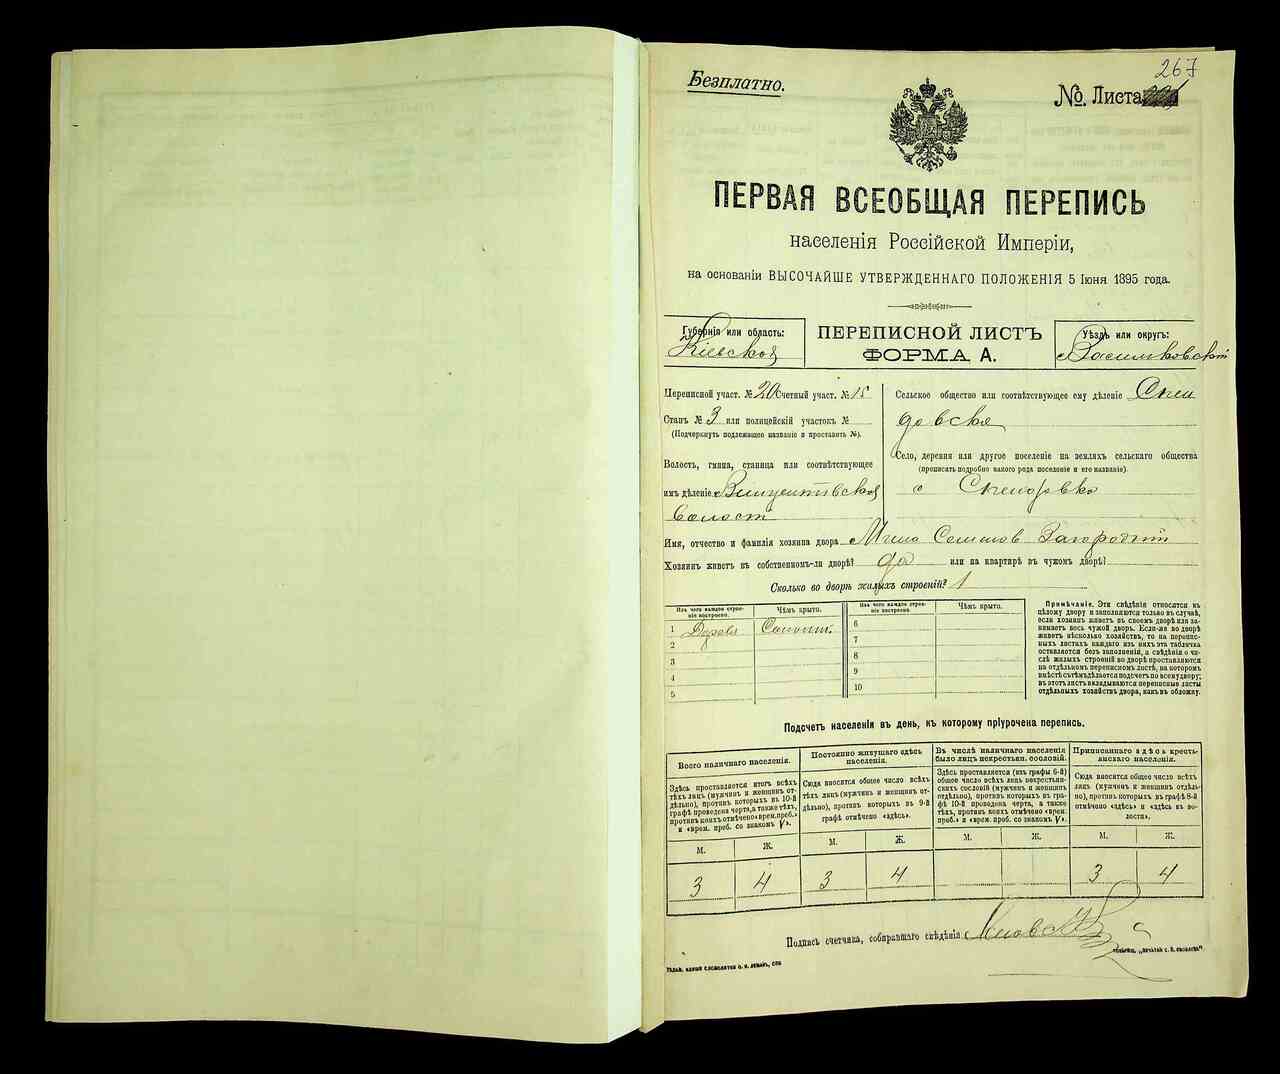 267
Безплатно.
№. Листа
ПЕРВАЯ ВСЕОБЩАЯ ПЕРЕПИСЬ
населенія Россійской Имперіи,
на основаніи ВЫСОЧАЙШЕ УТВЕРЖДЕННАГО ПОЛОЖЕНІЯ 5 Іюня 1895 года.
Губернія или область:
Кіевской
ПЕРЕПИСНОЙ ЛИСТЪ
ФОРМА А.
Уѣздъ или округъ:
Васильковскій
Переписной участ. № 20 Счетный участ. № 15
Станъ № 3 или полицейскій участокъ №
(Подчеркнуть подлежащее названіе и проставить №).
Волость, гмина, станица или соотвѣтствующее
имъ дѣленіе Винцентовской
Волост
Сельское общество или соотвѣтствующее ему дѣленіе
Село, деревня или другое поселеніе на земляхъ сельскаго общества
(прописать подробно какого рода поселеніе и его названіе).
с
Имя, отчество и фамилія хозяина двора
Хозяинъ живетъ въ собственномъ-ли дворѣ? да или на квартирѣ въ чужомъ дворѣ?
Сколько во дворѣ жилыхъ строеній? 1
Изъ чего каждое строе-
ніе построено.
Чѣмъ крыто.
Изъ чего каждое строе-
ніе построено.
Чѣмъ крыто.
1 Дерева Солом. 6
2 7
3 8
4 9
5 10
Примѣчаніе. Эти свѣдѣнія относятся къ
цѣлому двору и заполняются только въ случаѣ,
если хозяинъ живетъ въ своемъ дворѣ или за-
нимаетъ весь чужой дворъ. Если-же во дворѣ
живетъ нѣсколько хозяйствъ, то на перепис-
ныхъ листахъ каждаго изъ нихъ эта табличка
оставляется безъ заполненія, а свѣдѣнія о чи-
слѣ жилыхъ строеній во дворѣ проставляются
на отдѣльномъ переписномъ листѣ, на которомъ
вмѣстѣ съ тѣмъ дѣлается подсчетъ по всему двору;
въ этотъ листъ вкладываются переписные листы
отдѣльныхъ хозяйствъ двора, какъ въ обложку.
Подсчетъ населенія въ день, къ которому пріурочена перепись.
Всего наличнаго населенія.
Здѣсь проставляется итогъ всѣхъ
тѣхъ лицъ (мужчинъ и женщинъ от-
дѣльно), противъ которыхъ въ 10-й
графѣ проведена черта, а также тѣхъ,
противъ коихъ отмѣчено «врем. преб.»
и «врем. преб. со знакомъ V».
М. Ж.
3 4
Постоянно живущаго здѣсь
населенія.
Сюда вносится общее число всѣхъ
тѣхъ лицъ (мужчинъ и женщинъ от-
дѣльно), противъ которыхъ въ 9-й
графѣ отмѣчено «здѣсь».
М. Ж.
3 4
Въ числѣ наличнаго населенія
было лицъ некрестьян. сословій.
Здѣсь проставляется (изъ графы 6-й)
общее число всѣхъ лицъ некрестьян-
скихъ сословій (мужчинъ и женщинъ
отдѣльно), противъ которыхъ въ гра-
фѣ 10-й проведена черта, а также
тѣхъ, противъ коихъ отмѣчено «врем.
преб.» и «врем. преб. со знакомъ V».
М. Ж.
Приписаннаго здѣсь кресть-
янскаго населенія.
Сюда вносится общее число всѣхъ
лицъ (мужчинъ и женщинъ отдѣль-
но), противъ которыхъ въ графѣ 8-й
отмѣчено «здѣсь» и «здѣсь въ во-
лости».
М. Ж.
3 4
Подпись счетчика, собиравшаго свѣдѣнія